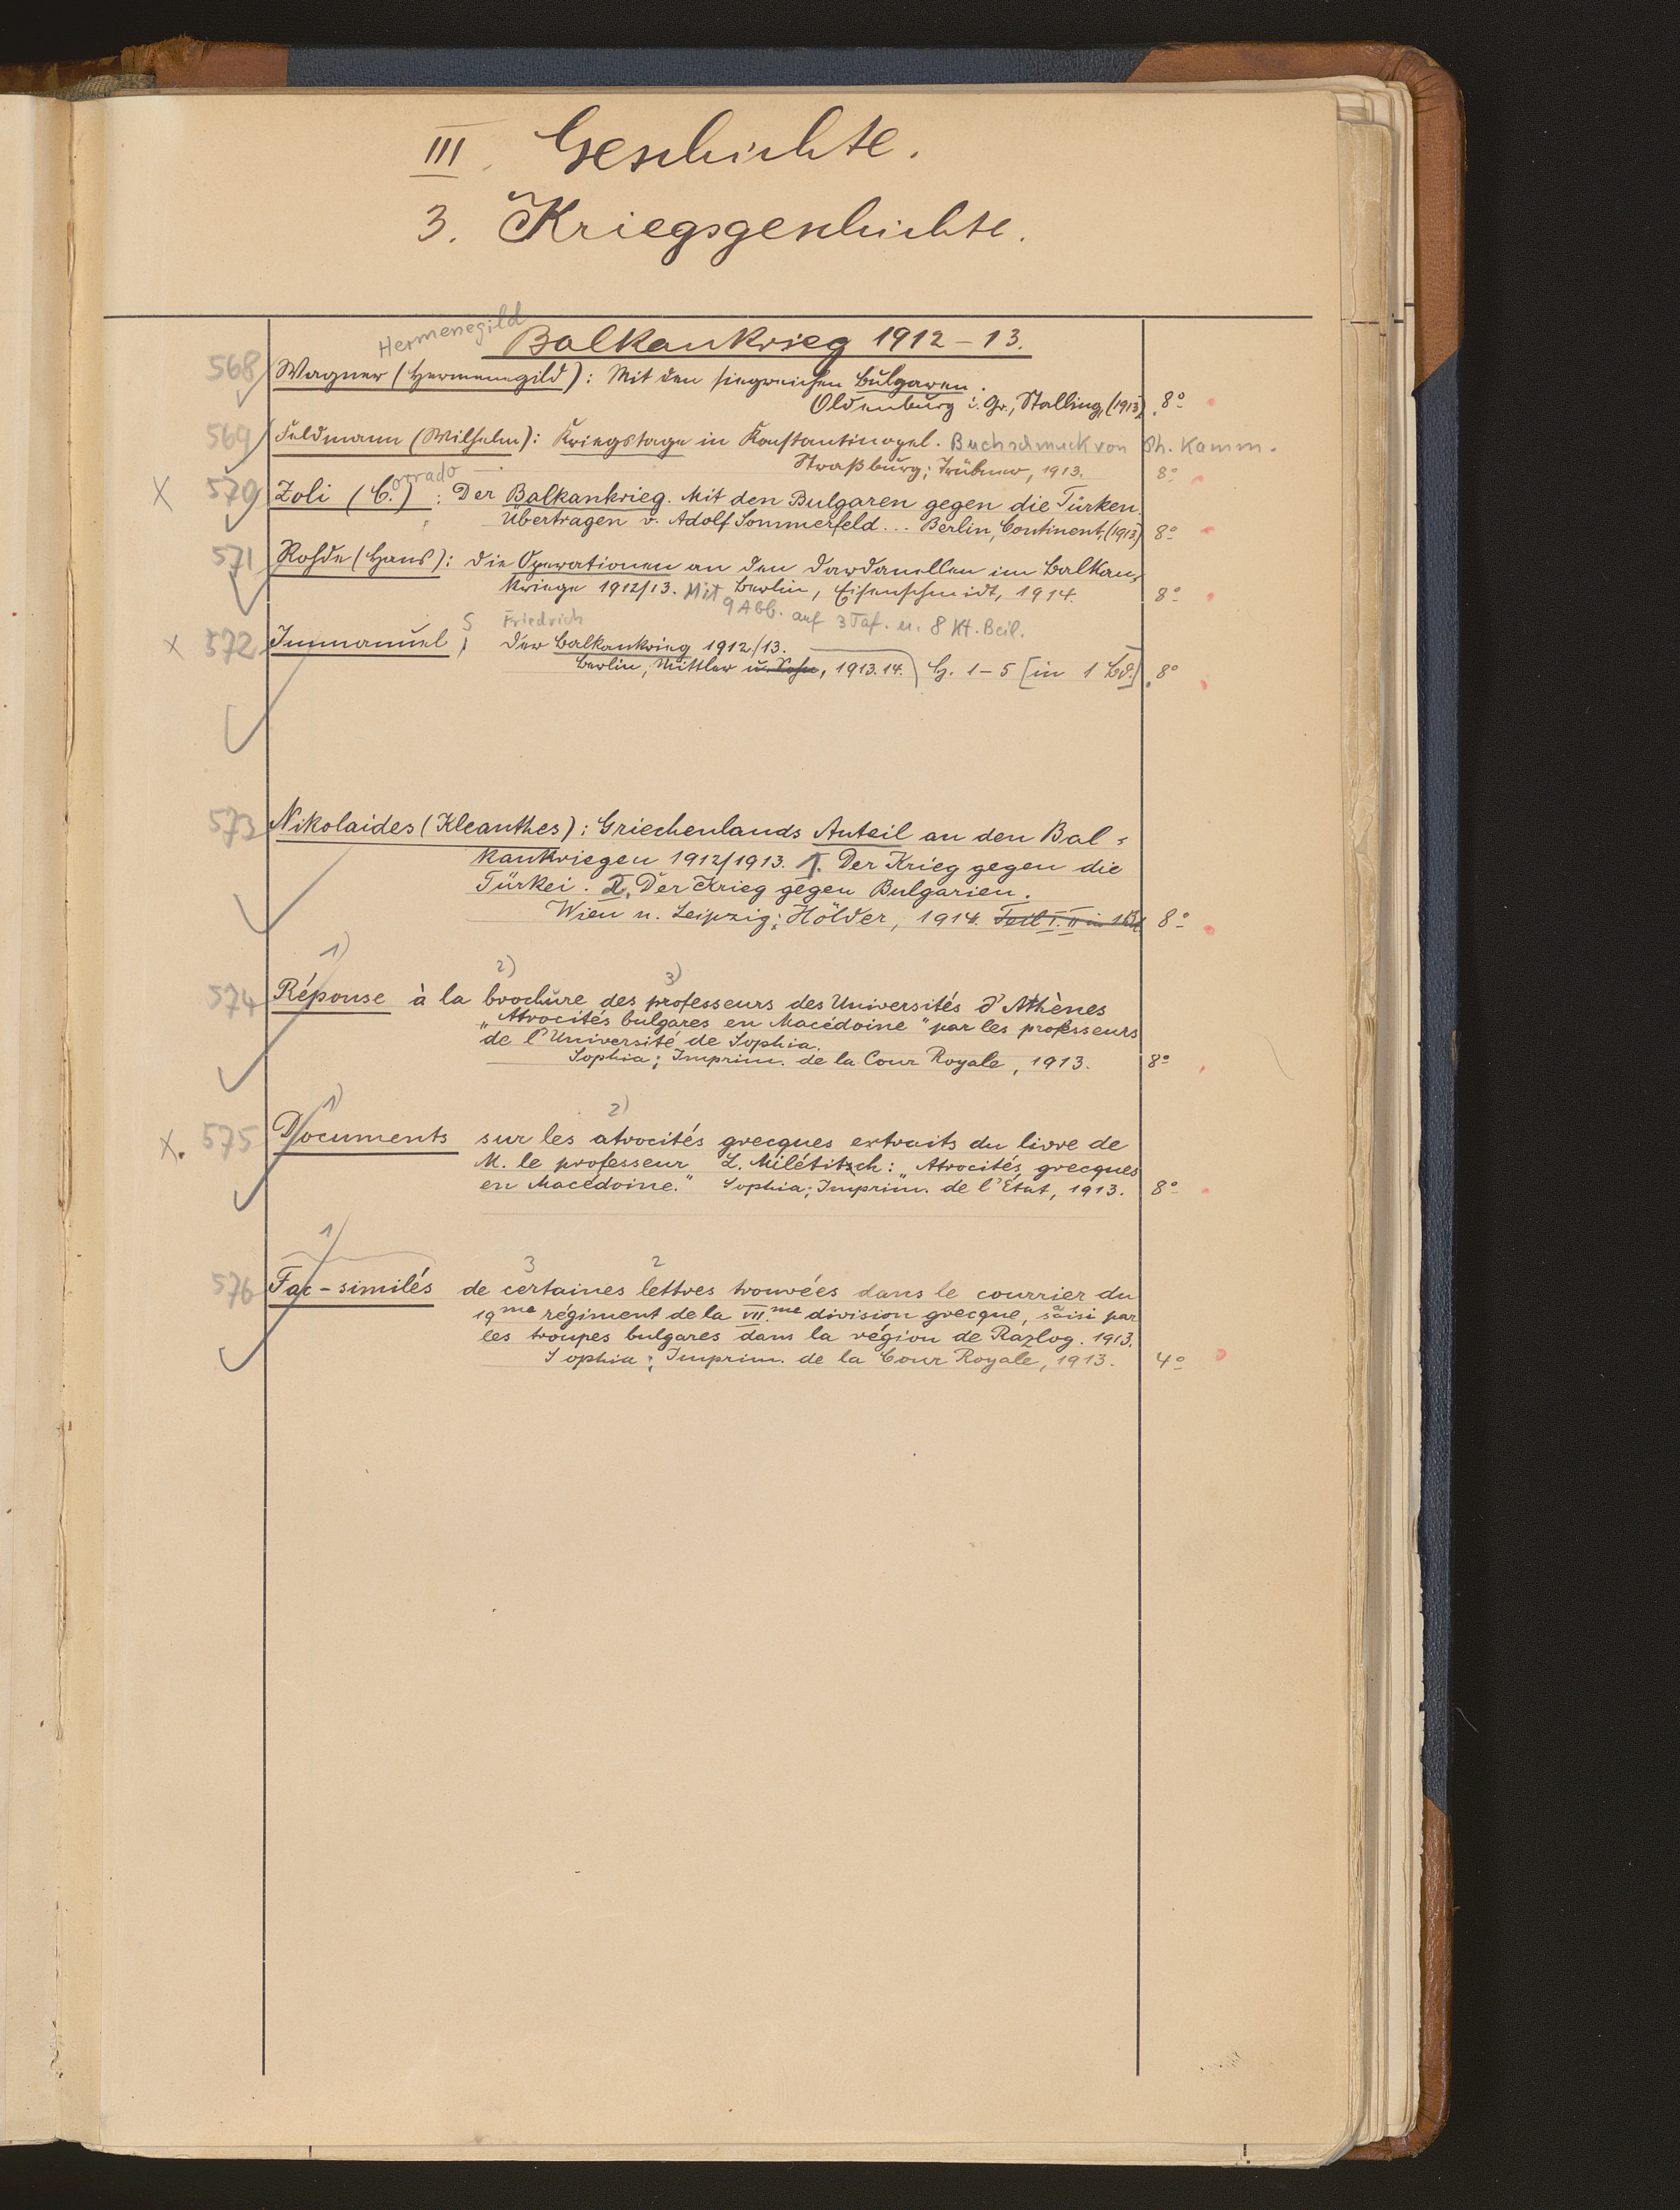 III. Geschichte.
3. Kriegsgeschichte.
Hermenegild
Balkankrieg 1912-13.
568 Wagner (Hermenegild): Mit den siegreichen Bulgaren.
Oldenburg i. Gr., Stalling, (1913) 8°
569 Feldmann (Wilhelm): Kriegstage in Konstantinopel. Buchschmuck von Ph. Kamm.
Straßburg; Trübner, 1913. 8°
X 570 Zoli (C.) orrado : Der Balkankrieg. Mit den Bulgaren gegen die Türken.
Übertragen v. Adolf Sommerfeld... Berlin, Continent, (1913) 8°
571 Rohde (Hans): Die Operationen an den Dardanellen im Balkan-
kriege 1912/13. Mit Berlin, Eisenschmidt, 1914. 8°
9 Abb. auf 3 Taf. u. 8 Kt. Beil.
Friedrich
X 572 Immanuel, Der Balkankrieg 1912/13.
Berlin, Mittler u. Sohn, 1913.14. H. 1-5 [in 1 Bd.] 8°
573 Nikolaides (Kleanthes): Griechenlands Anteil an den Bal-
kankriegen 1912/1913. I. Der Krieg gegen die
Türkei. II. Der Krieg gegen Bulgarien.
Wien u. Leipzig; Hölder, 1914. Teil I. II in 1 Bd. 8°
1) 2) 3)
574 Réponse à la brochure des professeurs des Universités d'Athènes
„Atrocités bulgares en Macédoine" par les professeurs
de l'Université de Sophia.
Sophia; Imprim. de la Cour Royale, 1913. 8°
1) 2)
X. 575 Documents sur les atrocités grecques extraits du livre de
M. le professeur L. Milétitsch: „Atrocités grecques
en Macédoine." Sophia; Imprim. de l'État, 1913. 8°
1) 3 2
576 Fac-similés de certaines lettres trouvées dans le courrier du
19me régiment de la VII.me division grecque, saisi par
les troupes bulgares dans la région de Razlog. 1913.
Sophia; Imprim. de la Cour Royale, 1913. 4°